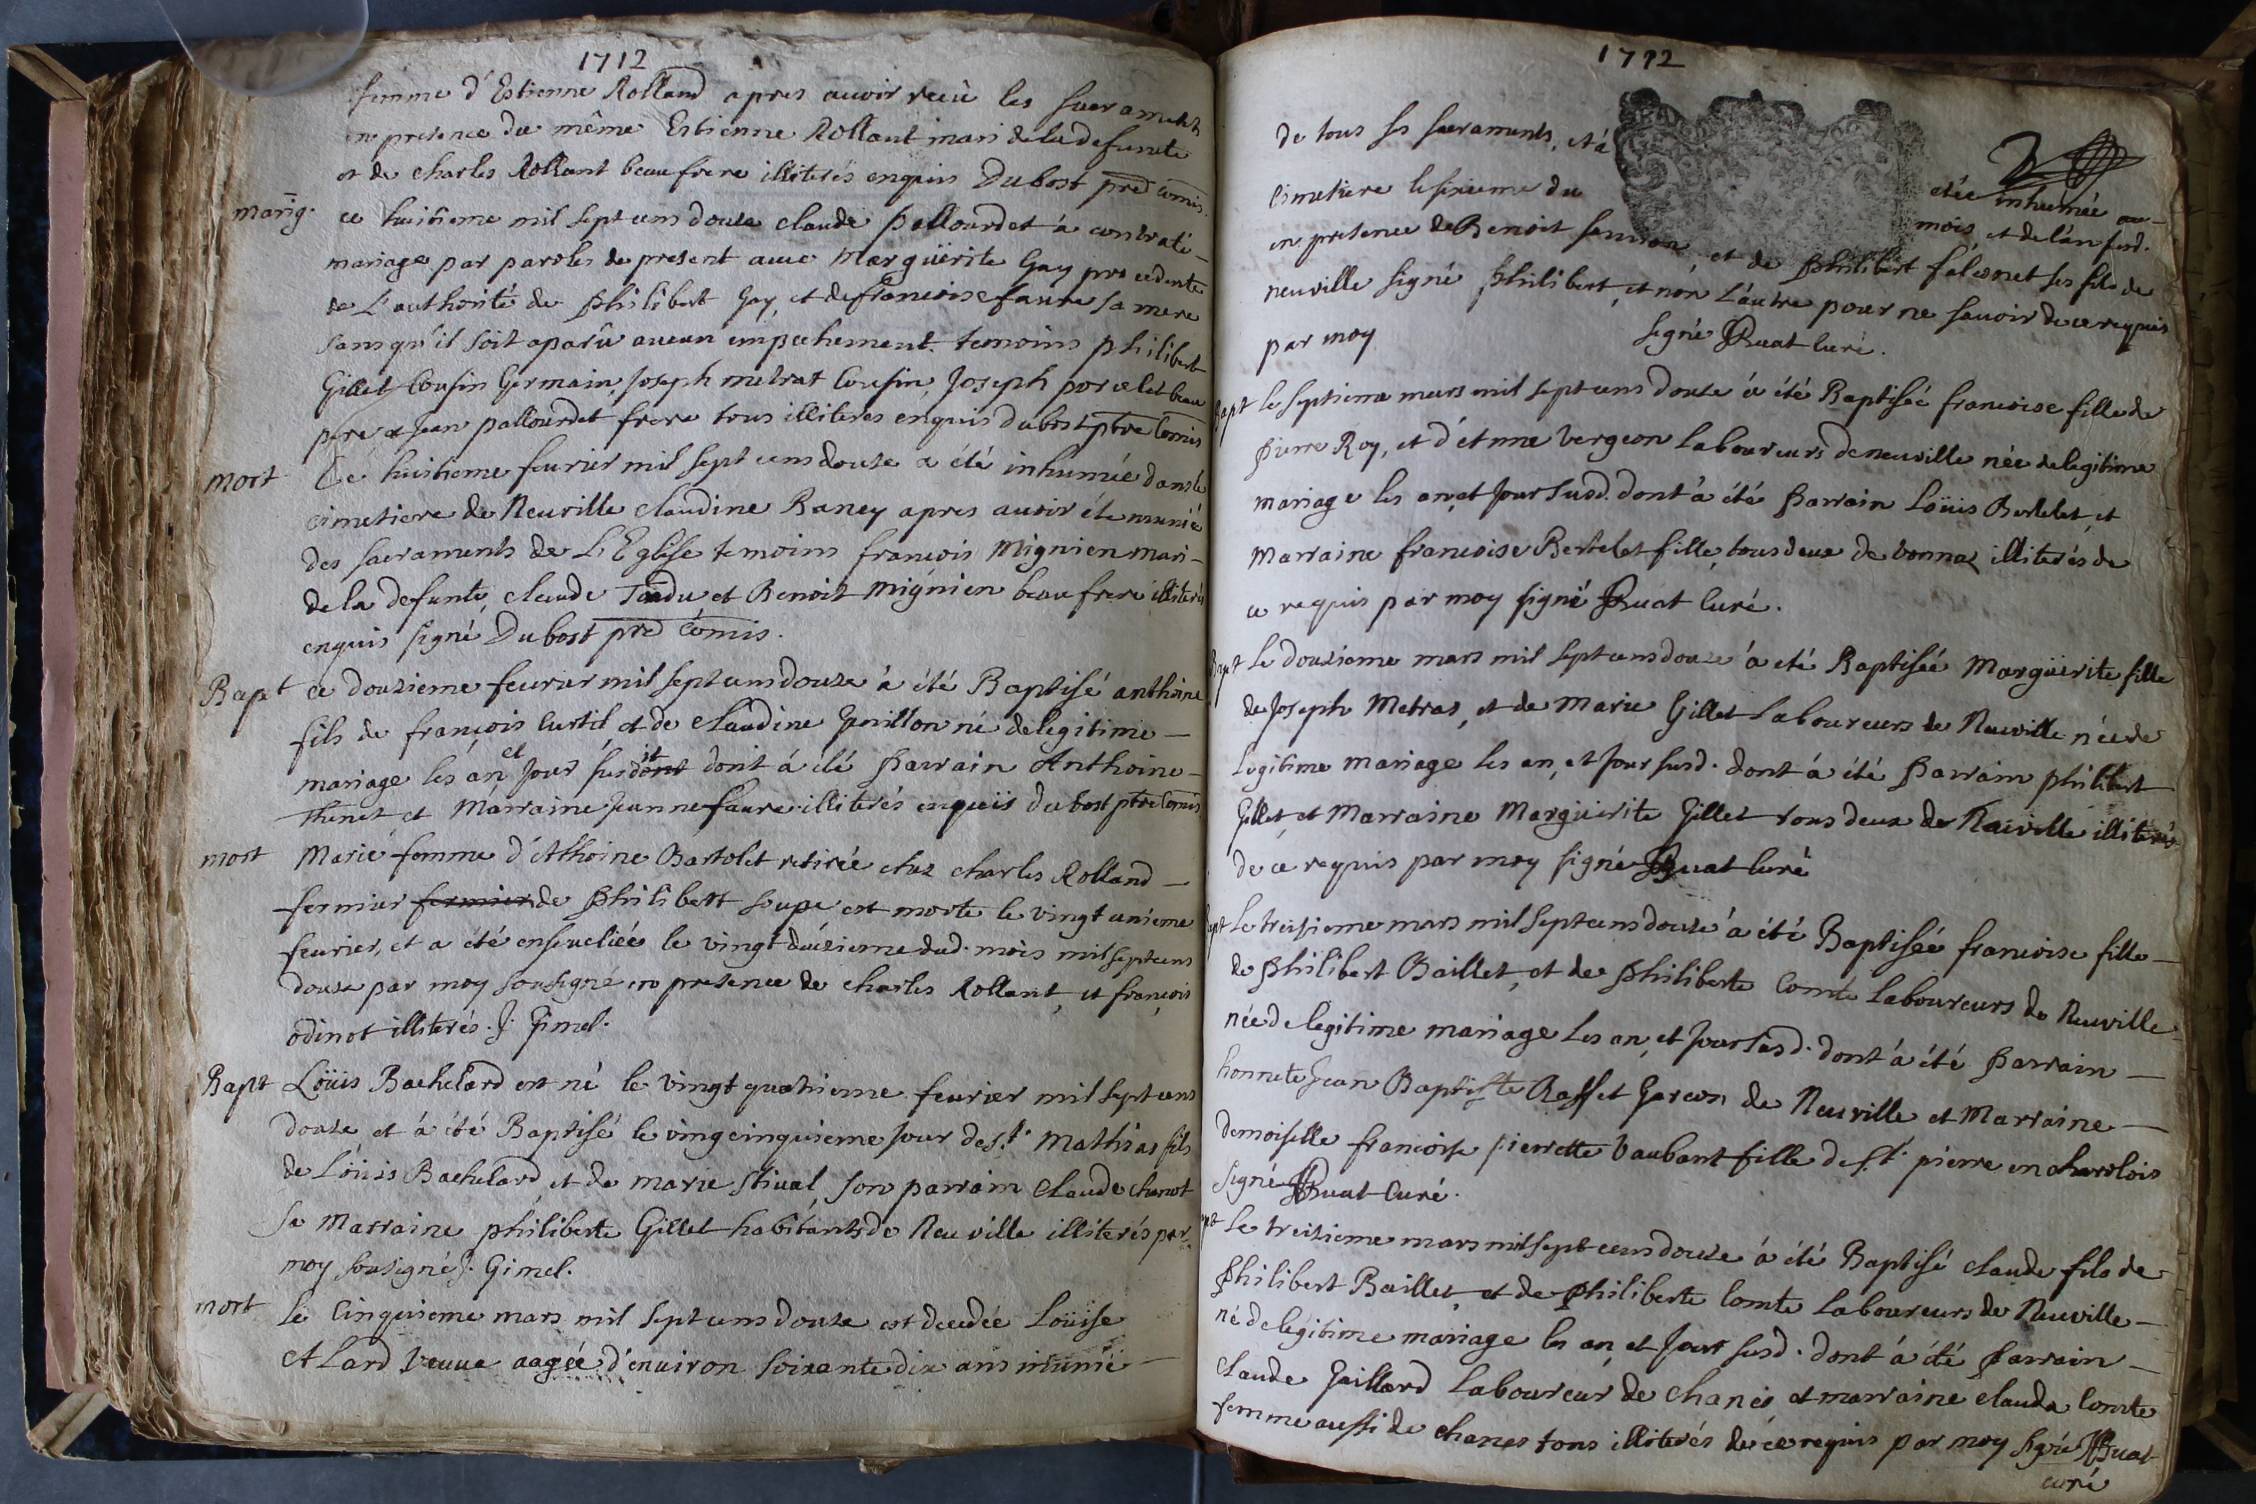 1712
femme d'Estienne Rolland apres auoir receu les sacraments
en presence du même Estienne Rollant mari de la defuncte
et de charles Rollant beaufrere illiterés enquis Dubost pre comis.
mariag. ce huitieme mil sept cens douze claude pallourdet à contraté
mariage par paroles de present auec Margüerite Gay procedente
de L'authorité de philibert Gay, et de francoise faure sa mere
sans qu'il soit aparû aucun empechement. temoins philibert
Gillet Cousin Germain, Joseph metrat Cousin, Joseph porcelet beau
pere et Jean pallourdet frere tous illiteres enquis dubost ptre Comis
mort Ce huitieme feurier mil sept cens douze a été inhumée dans le
cimetiere de Neuville claudine Raney apres auoir été munie
des sacraments de L'Eglise temoins françois Mignien mari
de la defunte, claude Tondu et Benoit mignien beaufrere illiterés
enquis signé Dubost pre Comis.
Bapt ce douzieme feurier mil sept cens douze à été Baptisé anthoine
fils de françois Curtil et de claudine Gouillon né de legitime
mariage les an et Jour susdit dont à été parrain Anthoine
Thenet et Marraine Jeanne faure illiterés enquis dubost ptre Comis
mort Marie femme d'Athoine Bartolet retirée chez charles Rolland
fermier fermier de philibert soupe est morte le vingt unieme
feurier, et a été enseueliée le vingt deuzieme dud. mois mil sept cens
douze par moy sousigné en presence de charles Rollant, et françois
odinot illiterés. J. Gimel.
Bapt Loüis Bachelard est né le vingt quatrieme feurier mil sept cens
douze et à été Baptisé le vingcinquieme Jour de st. Mathias fils
de Loüis Bachelard et de marie stiual, son parrain claude chanot
sa Marraine philiberte Gillet habitants de Neuville illiterés par
moy sousigné J. Gimel.
mort Le Cinquieme mars mil sept cens douze est decedée Loüise
Allard veuue aagée d'enuiron soixante dix ans munie
1712
de tous ses sacraments, et à étée inhumée au
cimetiere le sixieme du mois et de l'an susd.
en presence de Benoit et de philibert falconet ses fils de
neuville signé philibert, et non L'autre pour ne sauoir de ce requis
par moy signé Ruat Curé.
Bapt Le septieme mars mil sept cens douze à été Baptisée francoise fille de
pierre Roy, et d'étnne vergeon Laboureurs de neuville née de legitime
mariage les an, et Jour susd. dont à été parrain Loüis Bertelet, et
Marraine francoise Bertelet fille, tous deux de vonnas illiterés de
ce requis par moy signé Ruat Curé.
Bapt Le douzieme mars mil sept cens douze à eté Baptisée Margüerite fille
de Joseph Metras, et de Marie Gillet Laboureurs de Neuville née de
Legitime mariage les an, et Jour susd. dont à été parrain philibert
Gillet, et Marraine Margüerite Gillet tous deux de Neuville illiterés
de ce requis par moy signé Ruat Curé
Bapt Le treisieme mars mil sept cens douze à été Baptisée francoise fille
de philibert Baillet, et de philiberte Comte Laboureurs de Neuville
née de legitime mariage les an, et Jour susd. dont à été parrain
honnete Jean Baptiste Rosset Garcon de Neuville et Marraine
demoiselle francoise pierrette Vaubant fille de st. pierre en charolois
signé Ruat Curé.
Bapt Le treizieme mars mil sept cens douze à été Baptisé claude fils de
philibert Baillet, et de philiberte Comte Laboureurs de Neuville
né de legitime mariage les an, et Jour susd. dont à été parrain
claude Gaillard Laboureur de chanes et marraine clauda Comte
femme aussi de chanes tous illiterés de ce requis par moy signé Ruat
curé